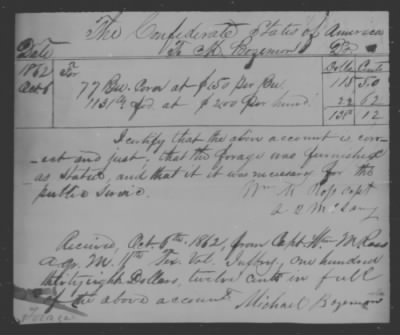 The Confederate States of America
Date To M Bozeman Dr.
1862 For Dolls Cents
Oct 6 77 Bu. Corn at $1.50 per Bu. 115 50
1131 lbs fod. at $2.00 per hund. 22 62
138 12
I certify that the above account is cor-
-ect and just; that the forage was furnished
as stated, and that it it was necessary for the
public service.
Wm M Ross Capt
Received, Oct 6th 1862, from Capt Wm M Ross
a.q. M. 11th Tex. Vol. Inftry, one hundred
thirty eight Dollars, twelve cents in full
of the above account
Michael Bozeman
Forage